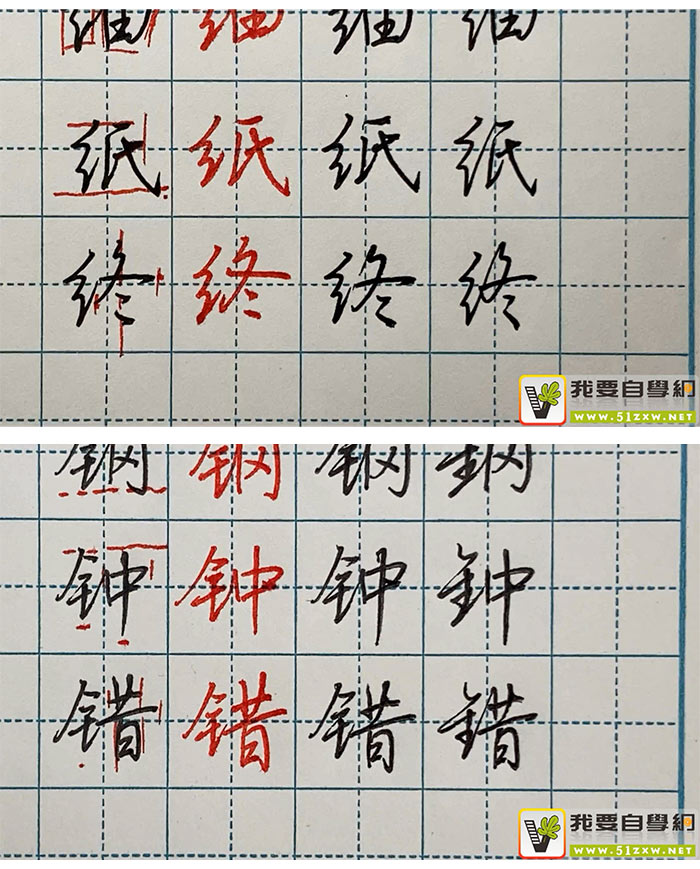 细 细 细 细
纸 纸 纸 纸
终 终 终 终
我要自學網
www.51zxw.net
钢 钢 钢 钢
钟 钟 钟 钟
错 错 错 错
我要自學網
www.51zxw.net